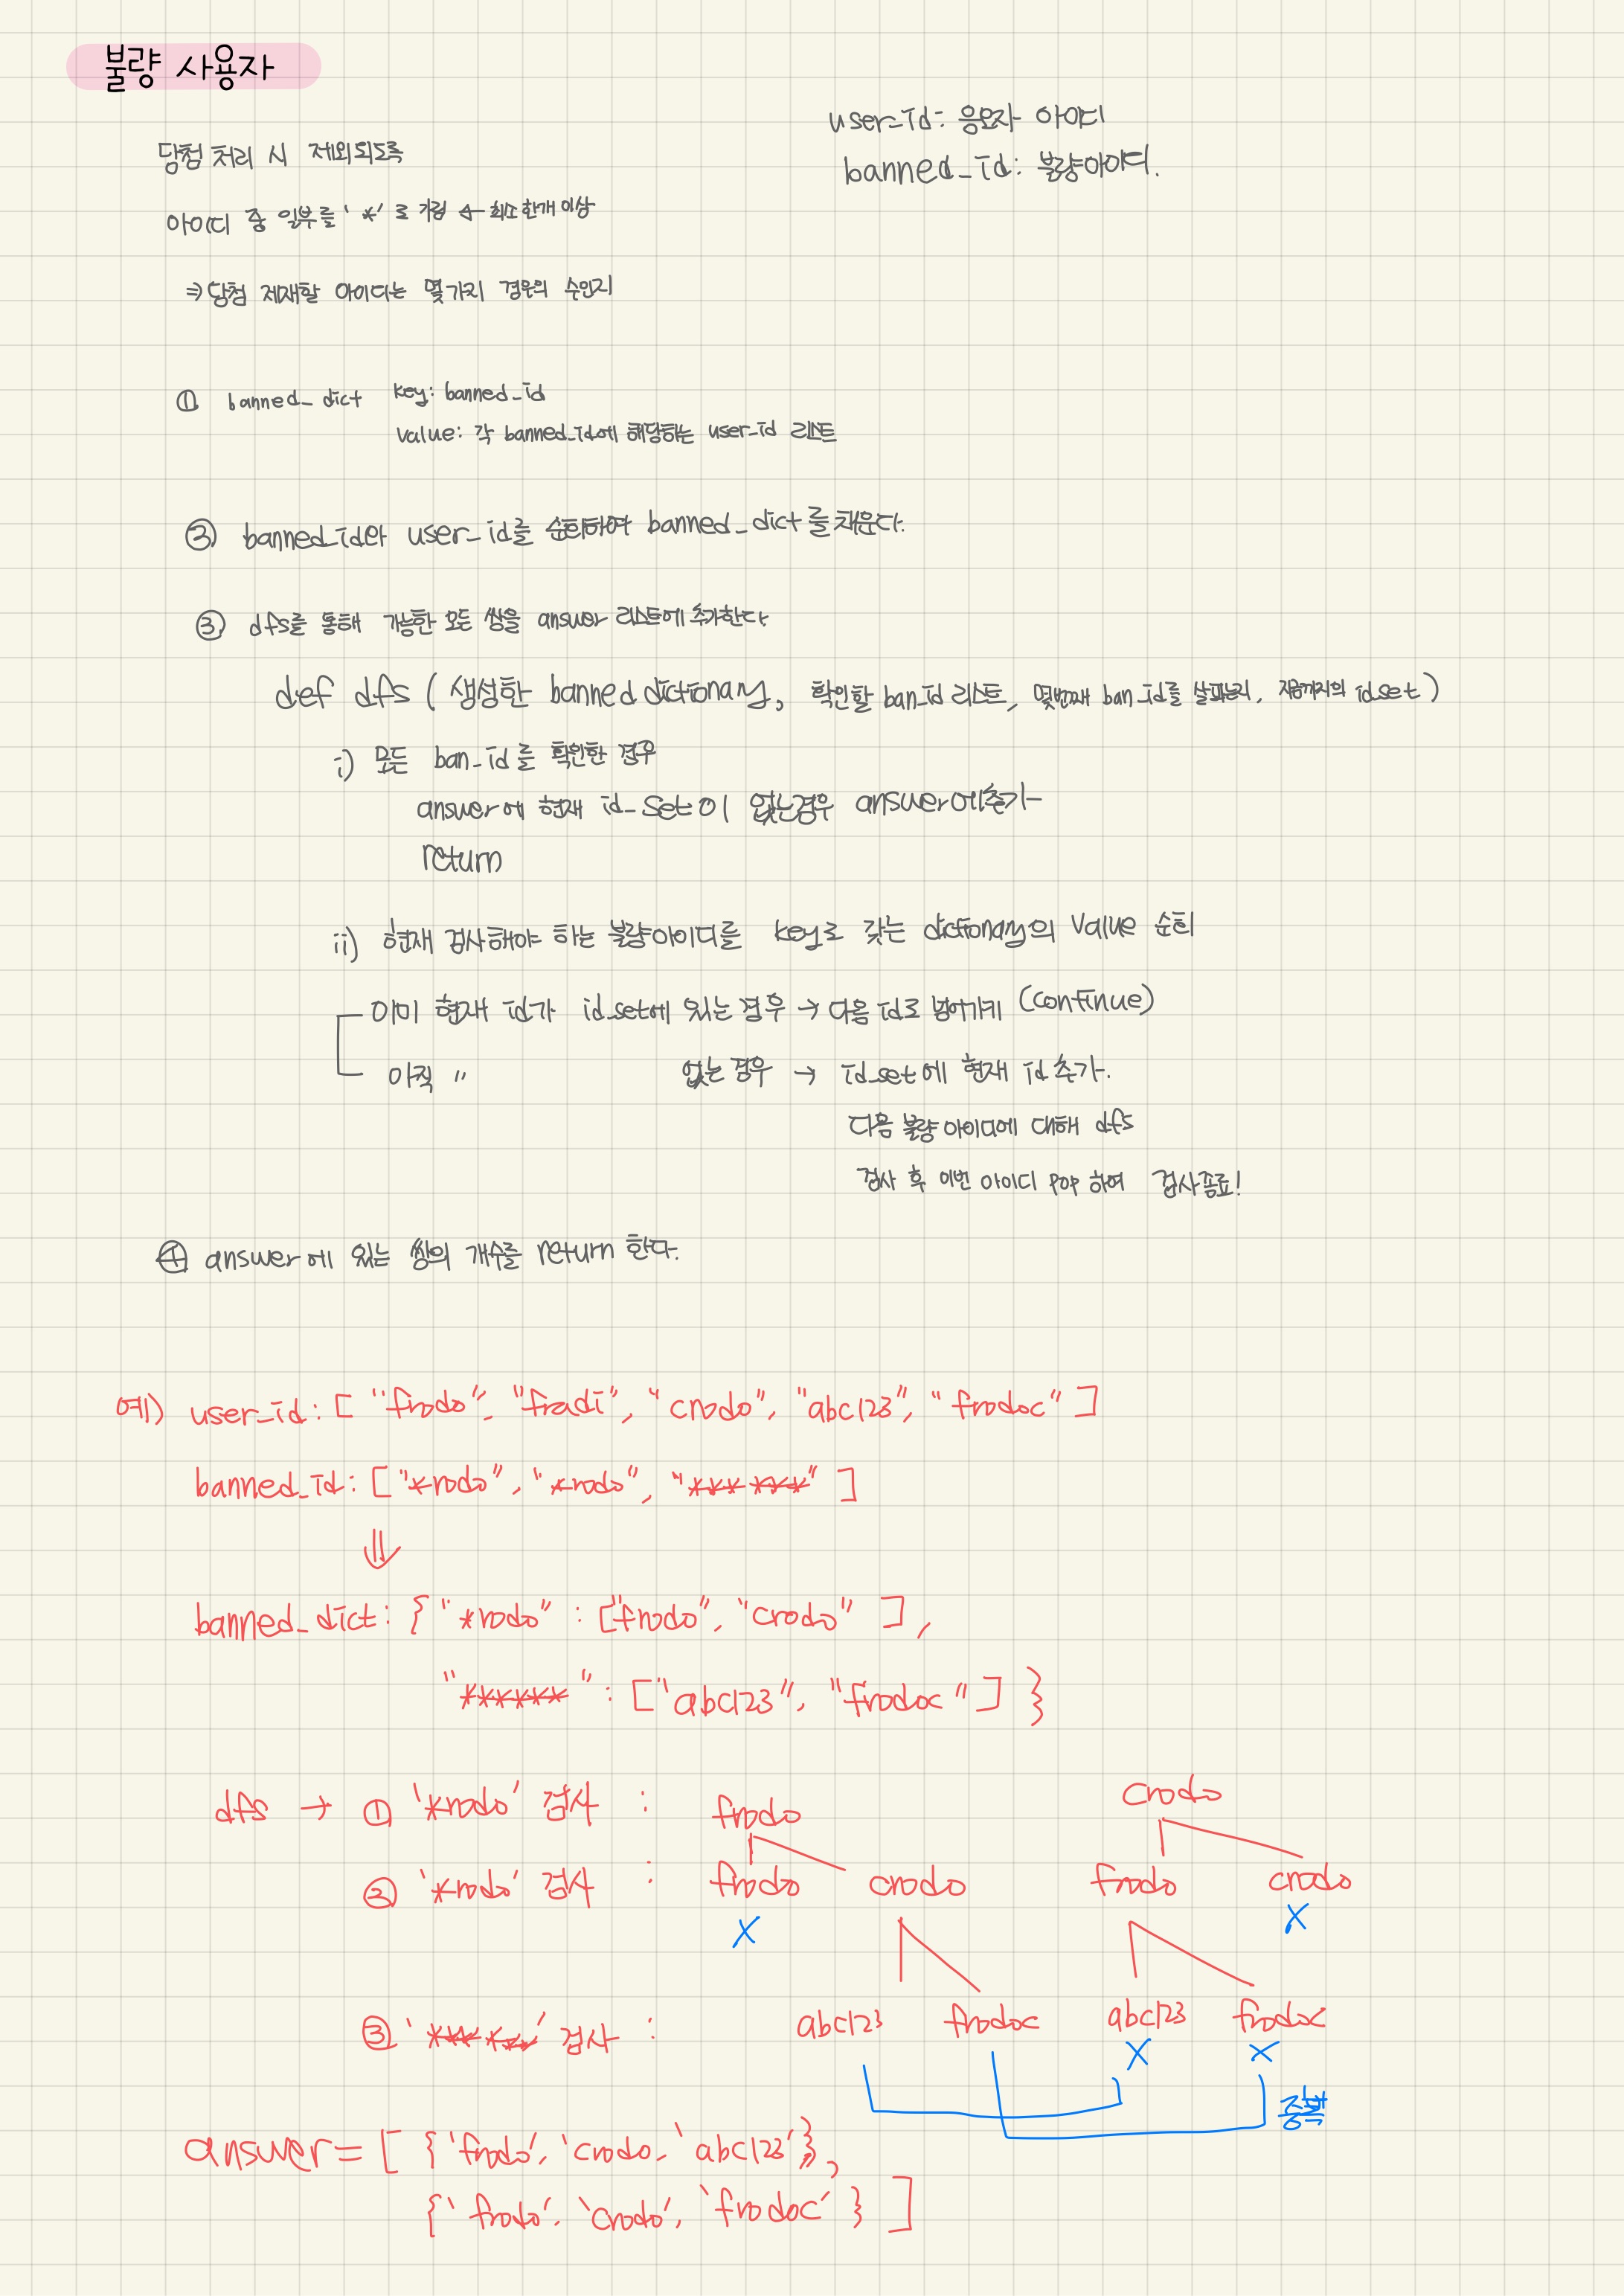 불량 사용자
user_id: 응모자 아이디
banned_id: 불량아이디.
당첨 처리 시 제외되도록
아이디 중 일부를 '*'로 가림 ← 최소 한개 이상
⇒ 당첨 제재할 아이디는 몇가지 경우의 수인지
① banned_dict key: banned_id
value: 각 banned_id에 해당하는 user_id 리스트
② banned_id와 user_id를 순회하여 banned_dict를 채운다.
③ dfs를 통해 가능한 모든 쌍을 answer 리스트에 추가한다
def dfs (생성한 banned dictionary, 확인할 ban_id 리스트, 몇번째 ban_id를 살피는지, 지금까지의 id set)
i) 모든 ban_id를 확인한 경우
answer에 현재 id_set이 없는경우 answer에 추가
return
ii) 현재 검사해야 하는 불량아이디를 key로 갖는 dictionary의 value 순회
이미 현재 id가 id_set에 있는 경우 → 다음 id로 넘어가기 (continue)
아직 " 없는 경우 → id_set에 현재 id 추가.
다음 불량 아이디에 대해 dfs
검사 후 이번 아이디 pop 하여 검사종료!
④ answer에 있는 쌍의 개수를 return 한다.
예) user_id: ["frodo", "fradi", "crodo", "abc123", "frodoc"]
banned_id: ["*rodo", "*rodo", "******"]
⇓
banned_dict: {"*rodo" : ["frodo", "crodo"],
"******": ["abc123", "frodoc"] }
dfs → ① '*rodo' 검사 : frodo crodo
② '*rodo' 검사 : frodo crodo frodo crodo
X X
③ '******' 검사 : abc123 frodoc abc123 frodoc
X X
중복
answer = [ {'frodo', 'crodo, 'abc123'},
{'frodo', 'crodo', 'frodoc'} ]